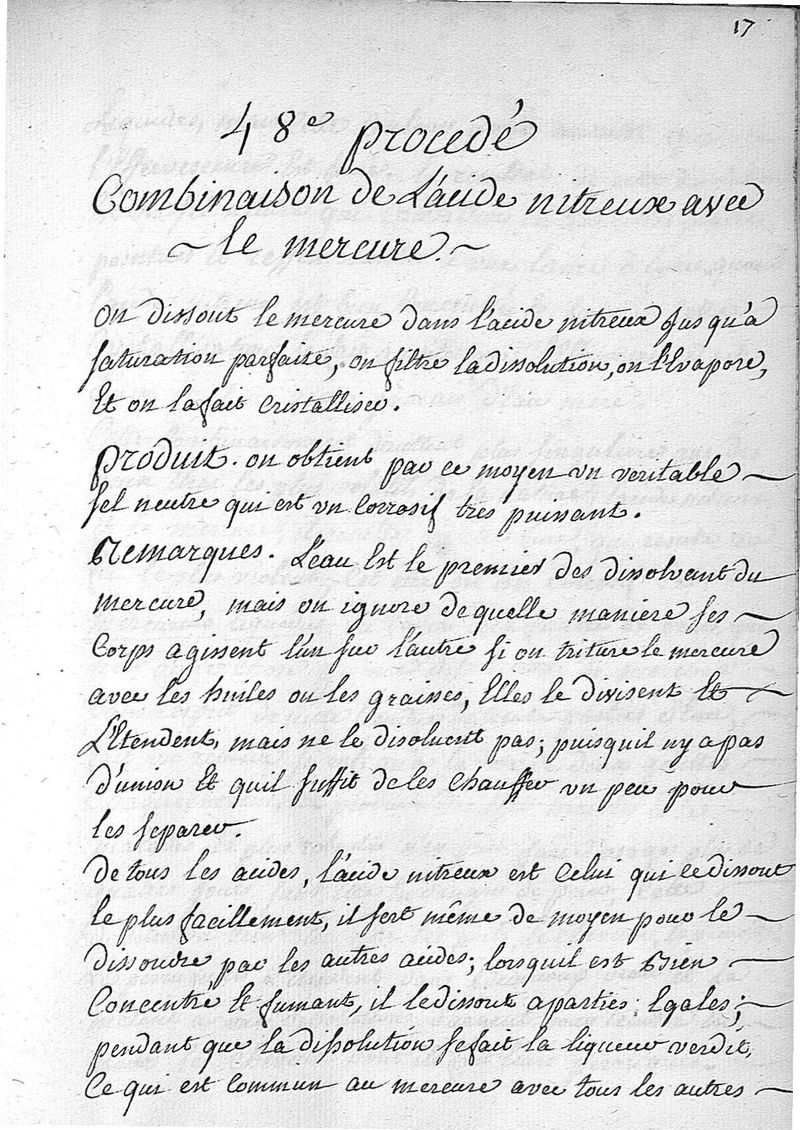 17
48e procedé
Combinaison de L'acide nitreux avec
le mercure.
On dissout le mercure dans l'acide nitreux jusqu'a
saturation parfaite, on filtre la dissolution, on l'Evapore,
Et on la fait cristalliser.
produit. on obtient par ce moyen un veritable
sel neutre qui est un Corrosif tres puissant.
Remarques. L'eau Est le premier des dissolvant du
mercure, mais on ignore de quelle maniere ses
Corps agissent l'un sur l'autre si on triture le mercure
avec les huiles ou les graisses, Elles le divisent Et
L'Etendent, mais ne le disoluent pas; puisquil ny a pas
d'union Et quil suffit de les chauffer un peu pour
les separer.
De tous les acides, l'acide nitreux est Celui qui le dissout
le plus facillement, il sert même de moyen pour le
dissoudre par les autres acides; lorsquil est Bien
Concentre Et fumant, il le dissout a parties Egales;
pendant que la dissolution se fait la liqueur verdit,
Ce qui est Commun au mercure avec tous les autres